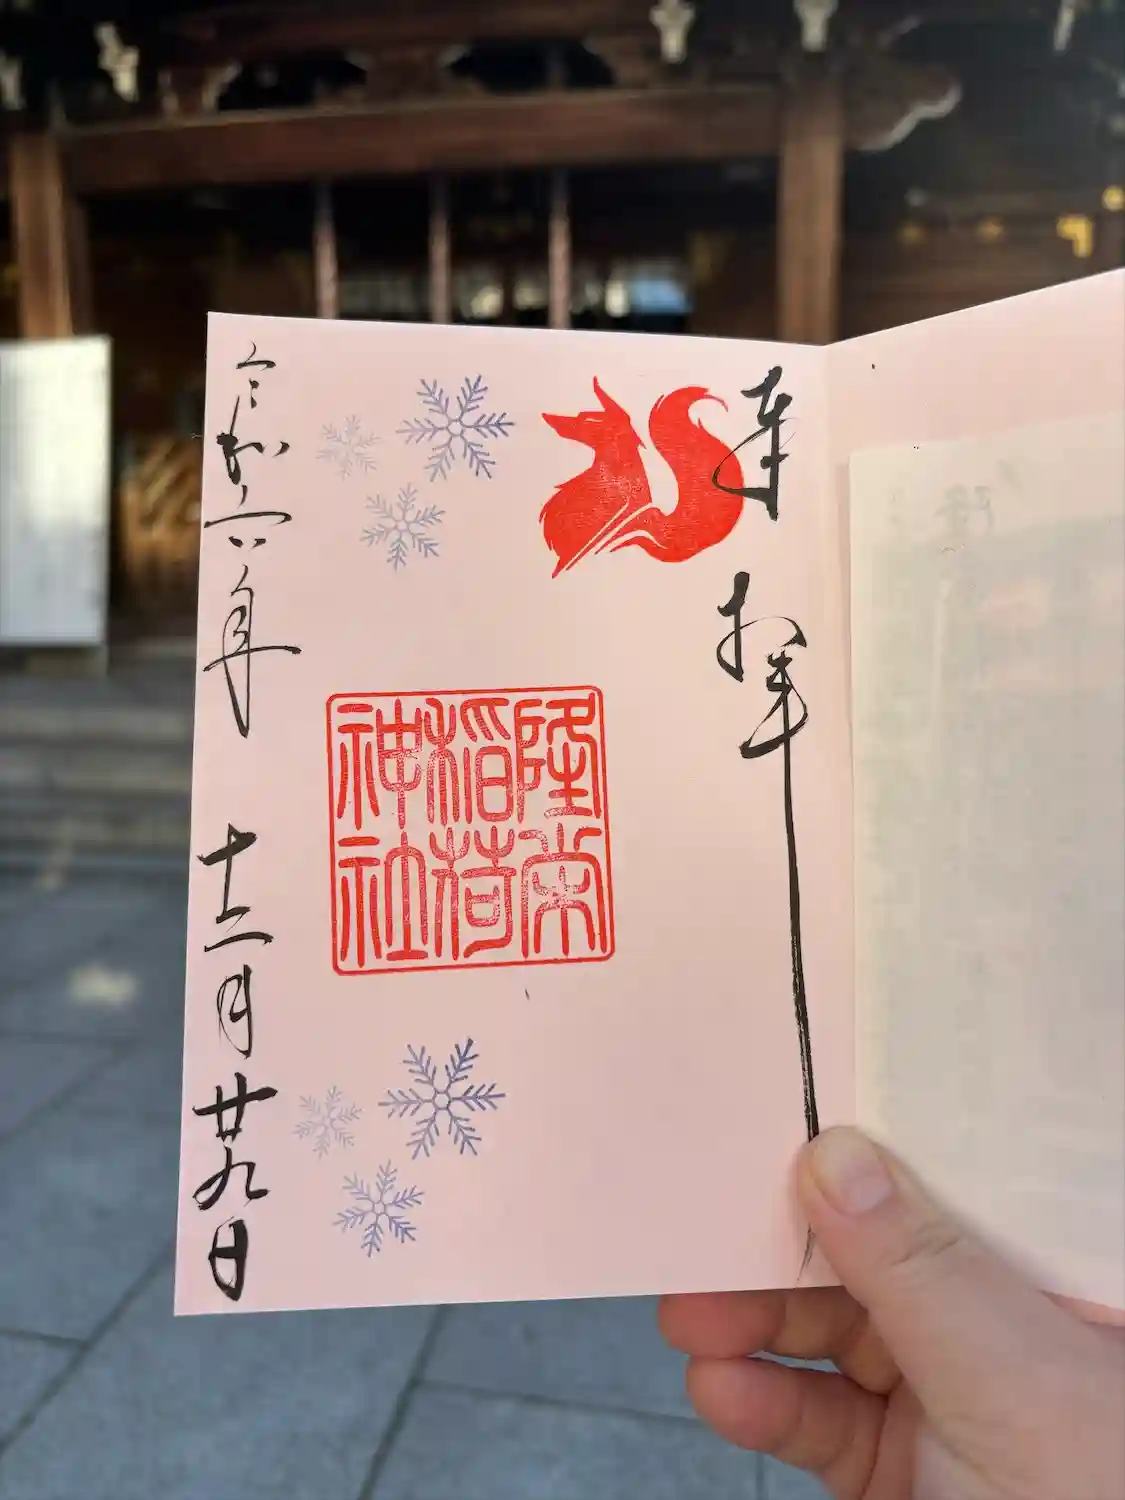 奉拝
隆栄
稲荷
神社
令和六年 十二月廿九日